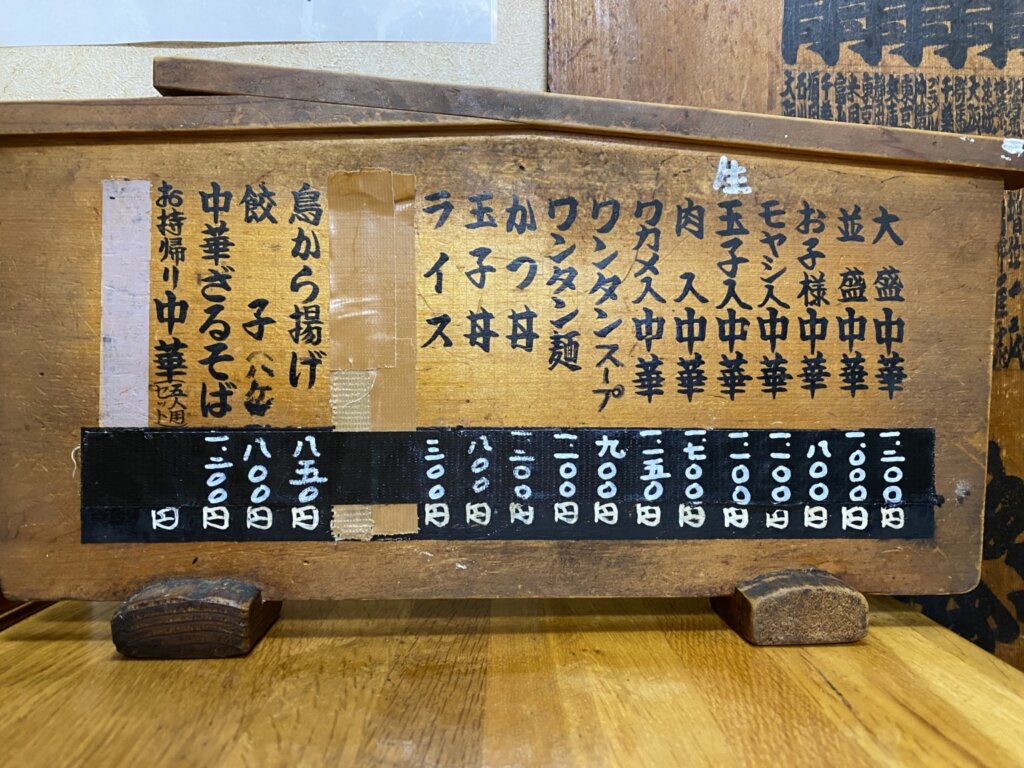 大盛中華 一.三〇〇円
並盛中華 一.〇〇〇円
お子様中華 八〇〇円
モヤシ入中華 一.一〇〇円
生玉子入中華 一.一〇〇円
肉入中華 一.七〇〇円
ワカメ入中華 一.一五〇円
ワンタンスープ 九〇〇円
ワンタン麺 一.一〇〇円
かつ丼 一.二〇〇円
玉子丼 八〇〇円
ライス 三〇〇円
鳥から揚げ 八五〇円
餃子(八ケ) 八〇〇円
中華ざるそば 一.二〇〇円
お持帰り中華 五人用セット 円